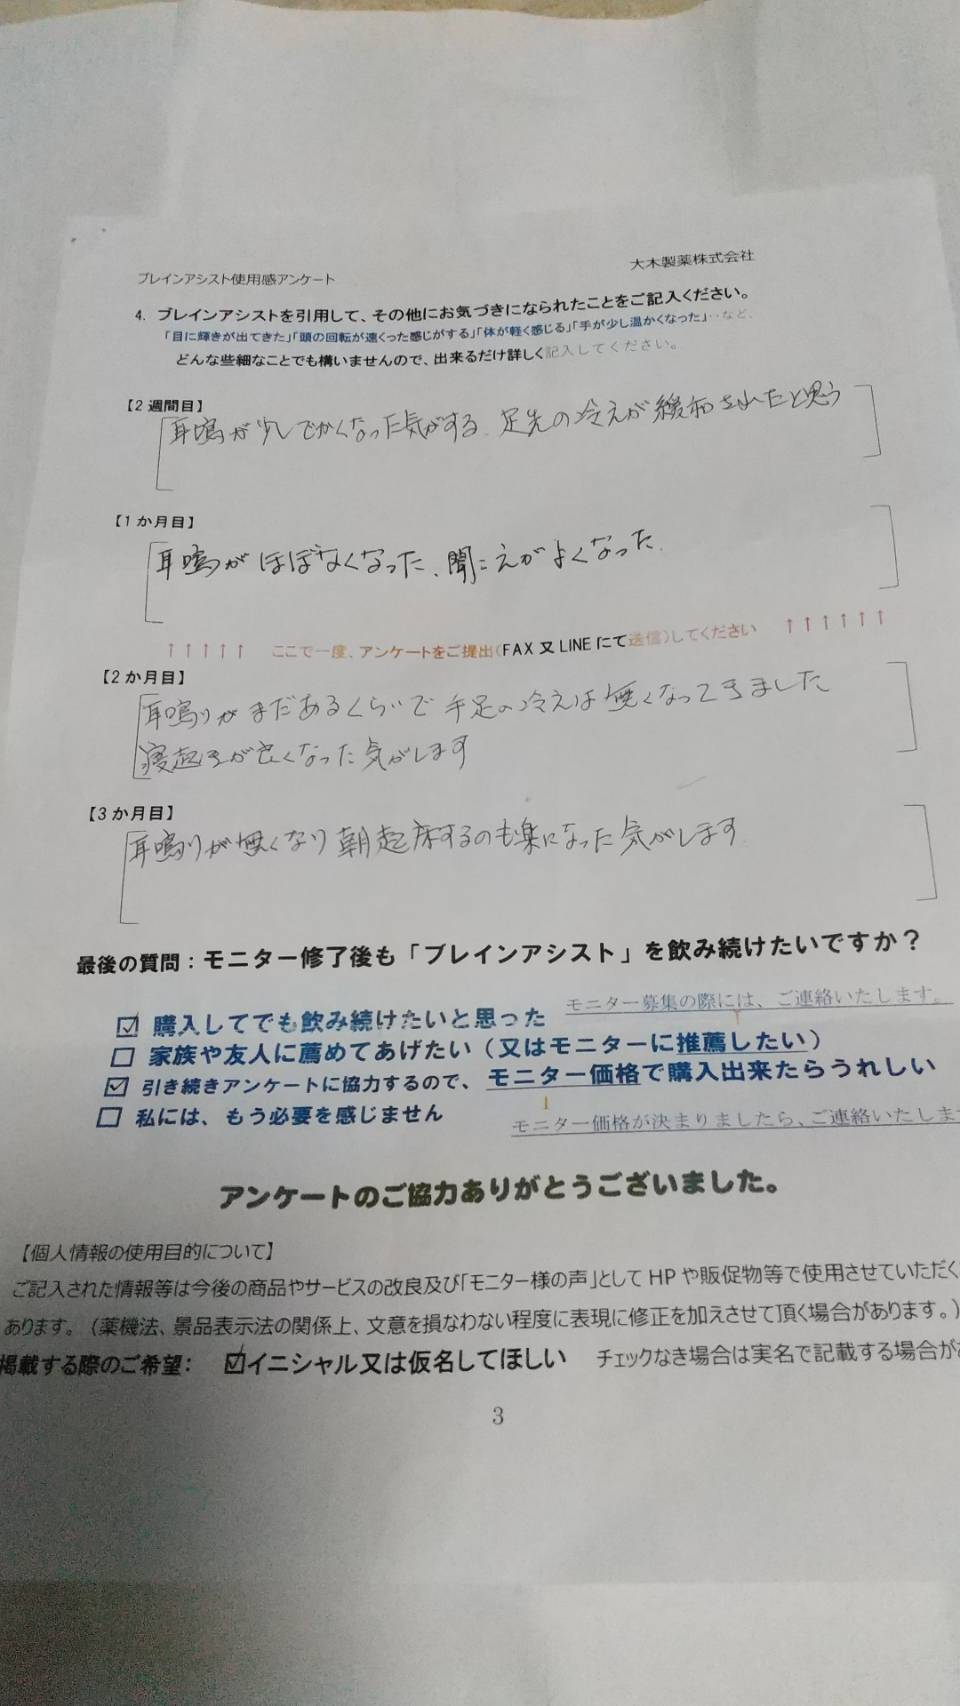 ブレインアシスト使用感アンケート
大木製薬株式会社
4. ブレインアシストを引用して、その他にお気づきになられたことをご記入ください。
「目に輝きが出てきた」「頭の回転が速くった感じがする」「体が軽く感じる」「手が少し温かくなった」‥など、
どんな些細なことでも構いませんので、出来るだけ詳しく記入してください。
【2週間目】
耳鳴が少しでかくなった気がする、足先の冷えが緩和されたと思う
【1か月目】
耳鳴がほぼなくなった、聞こえがよくなった、
↑↑↑↑↑ ここで一度、アンケートをご提出(FAX又LINEにて送信)してください ↑↑↑↑↑↑
【2か月目】
耳鳴りがまだあるくらいで手足の冷えは無くなってきました
寝起きが良くなった気がします
【3か月目】
耳鳴りが無くなり朝起床するのも楽になった気がします
最後の質問：モニター修了後も「ブレインアシスト」を飲み続けたいですか？
☑ 購入してでも飲み続けたいと思った
モニター募集の際には、ご連絡いたします。
☐ 家族や友人に薦めてあげたい（又はモニターに推薦したい）
☑ 引き続きアンケートに協力するので、モニター価格で購入出来たらうれしい
☐ 私には、もう必要を感じません
モニター価格が決まりましたら、ご連絡いたしま
アンケートのご協力ありがとうございました。
【個人情報の使用目的について】
ご記入された情報等は今後の商品やサービスの改良及び「モニター様の声」としてHPや販促物等で使用させていただく
あります。（薬機法、景品表示法の関係上、文意を損なわない程度に表現に修正を加えさせて頂く場合があります。）
掲載する際のご希望： ☑イニシャル又は仮名してほしい チェックなき場合は実名で記載する場合が
3